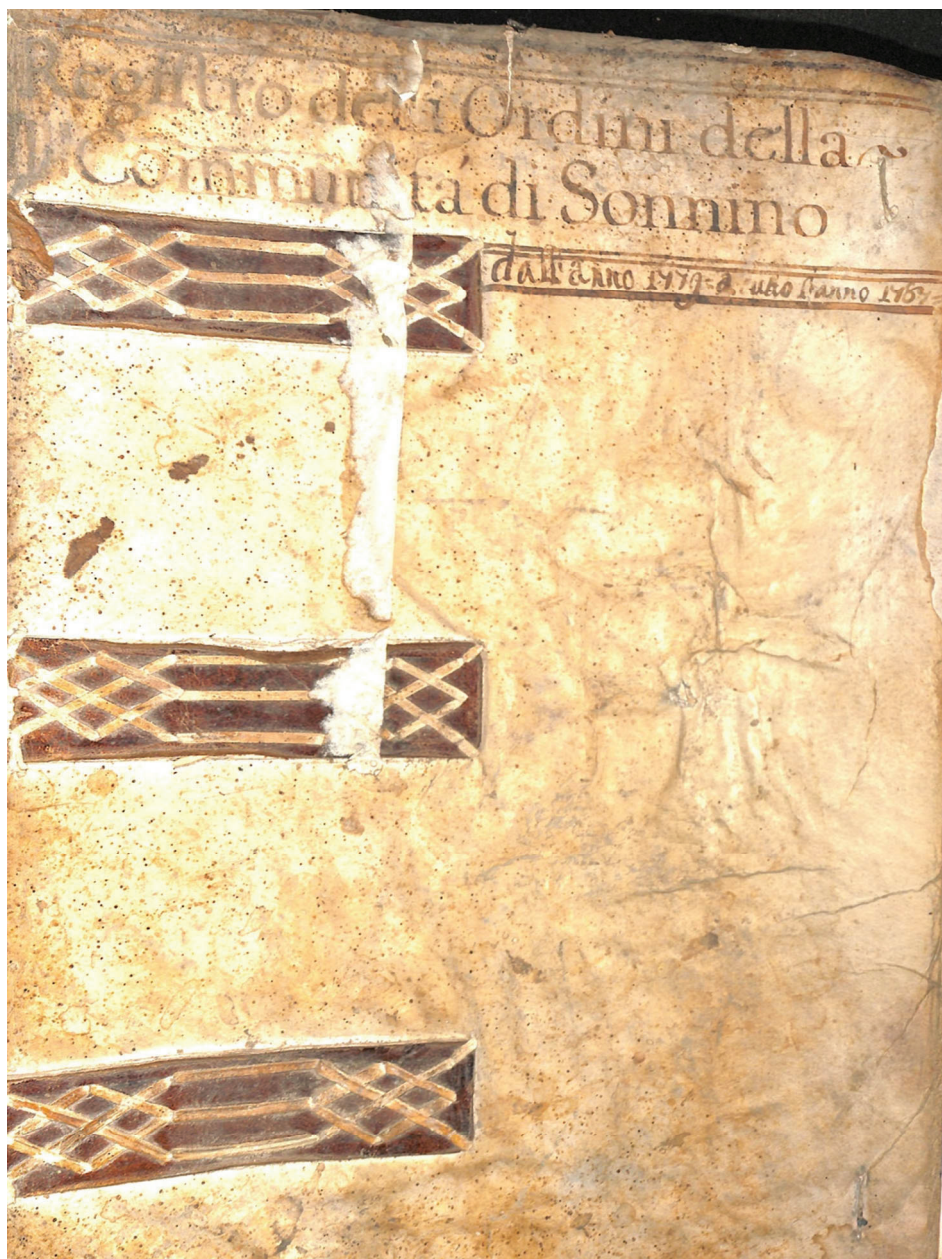 Registro delli Ordini della
Communitá di Sonnino
dall'anno 1779 a l'anno